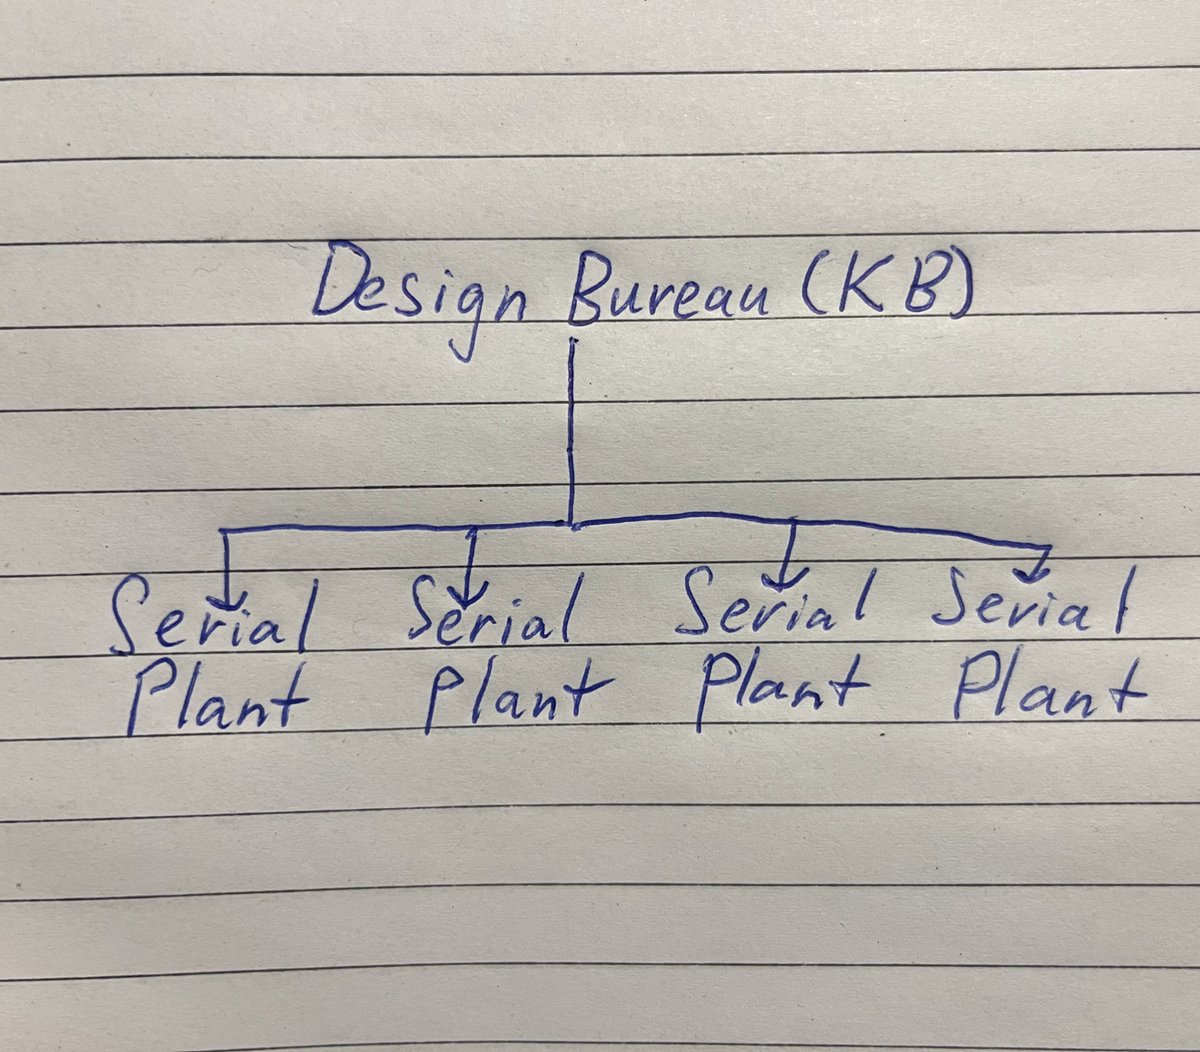 Design Bureau (KB)
Serial Serial Serial Serial
Plant Plant Plant Plant